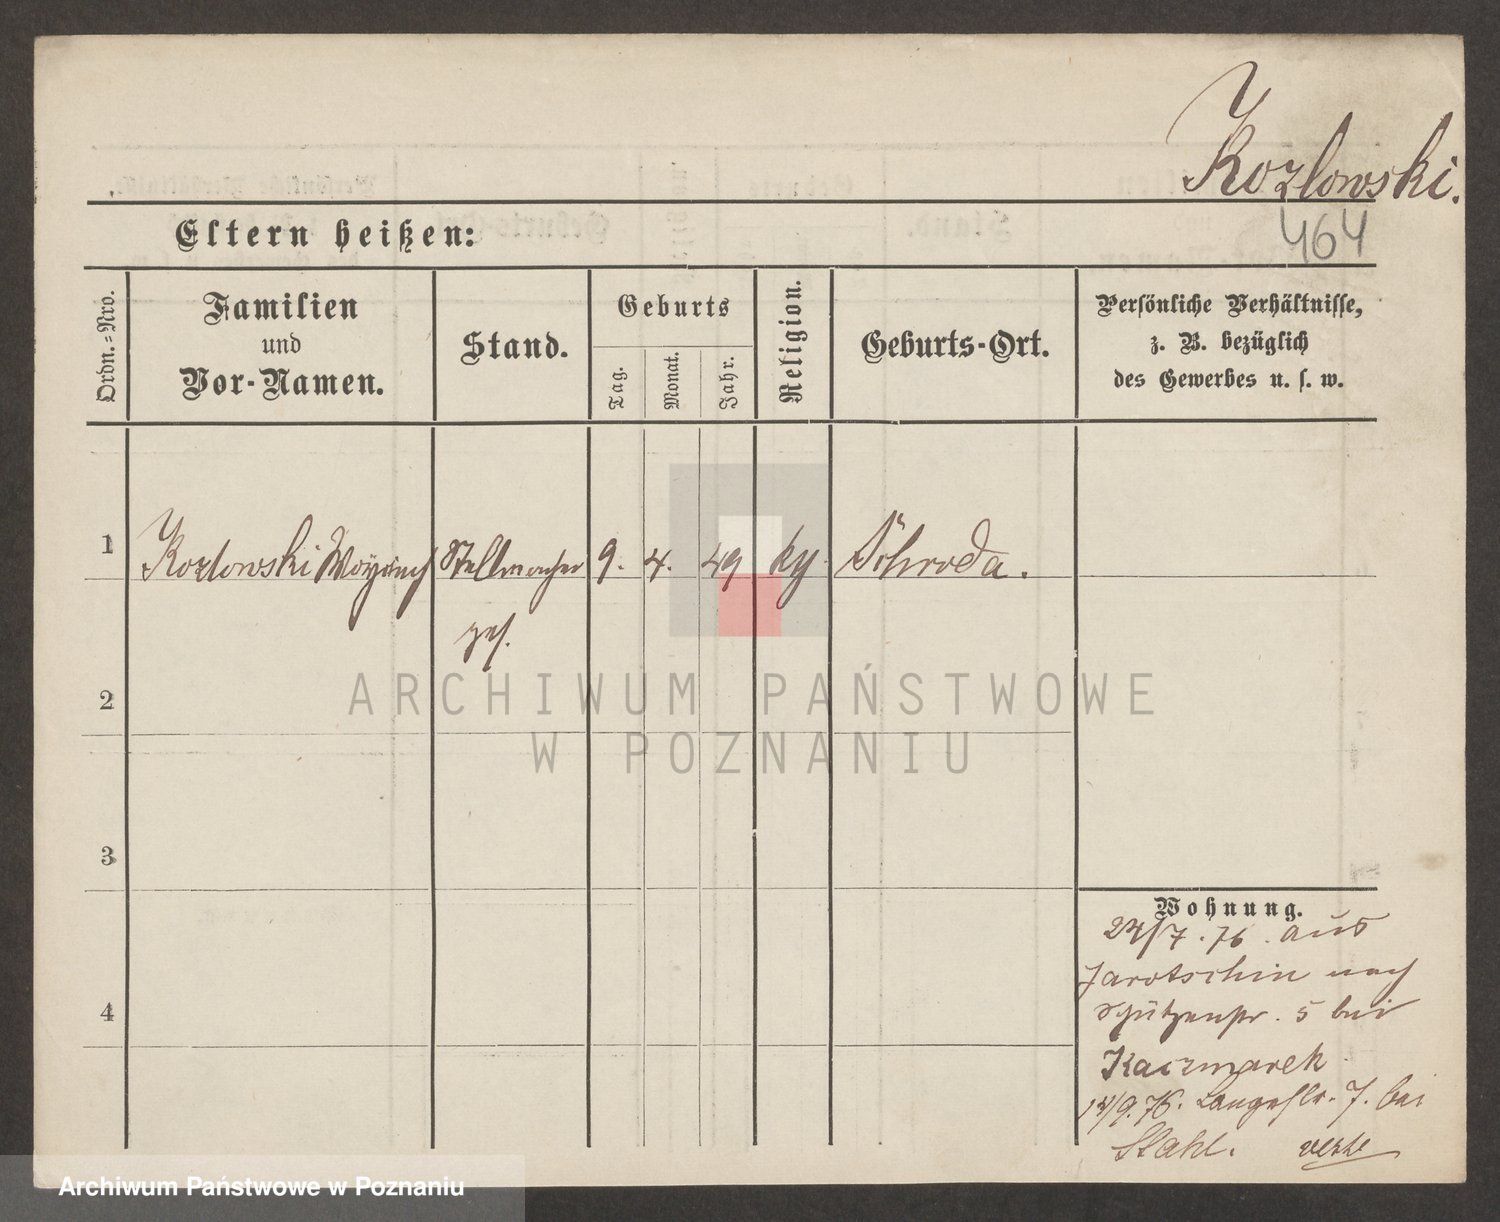 Kozlowski.
464
Eltern heißen:
Ordn.=Nro.
Familien
und
Vor-Namen.
Stand.
Geburts
Tag.
Monat.
Jahr.
Religion.
Geburts-Ort.
Persönliche Verhältnisse,
z. B. bezüglich
des Gewerbes u. s. w.
1
Kozlowski Stellmacher 9. 4. 49 Schroda.
ges.
2
3
4
Wohnung.
24/7. 76. aus
Jarotschin nach
Schützenstr. 5 bei
Kaczmarek
14/9. 76. Langestr. 7. bei
Stahl. verte
ARCHIWUM PAŃSTWOWE
W POZNANIU
Archiwum Państwowe w Poznaniu